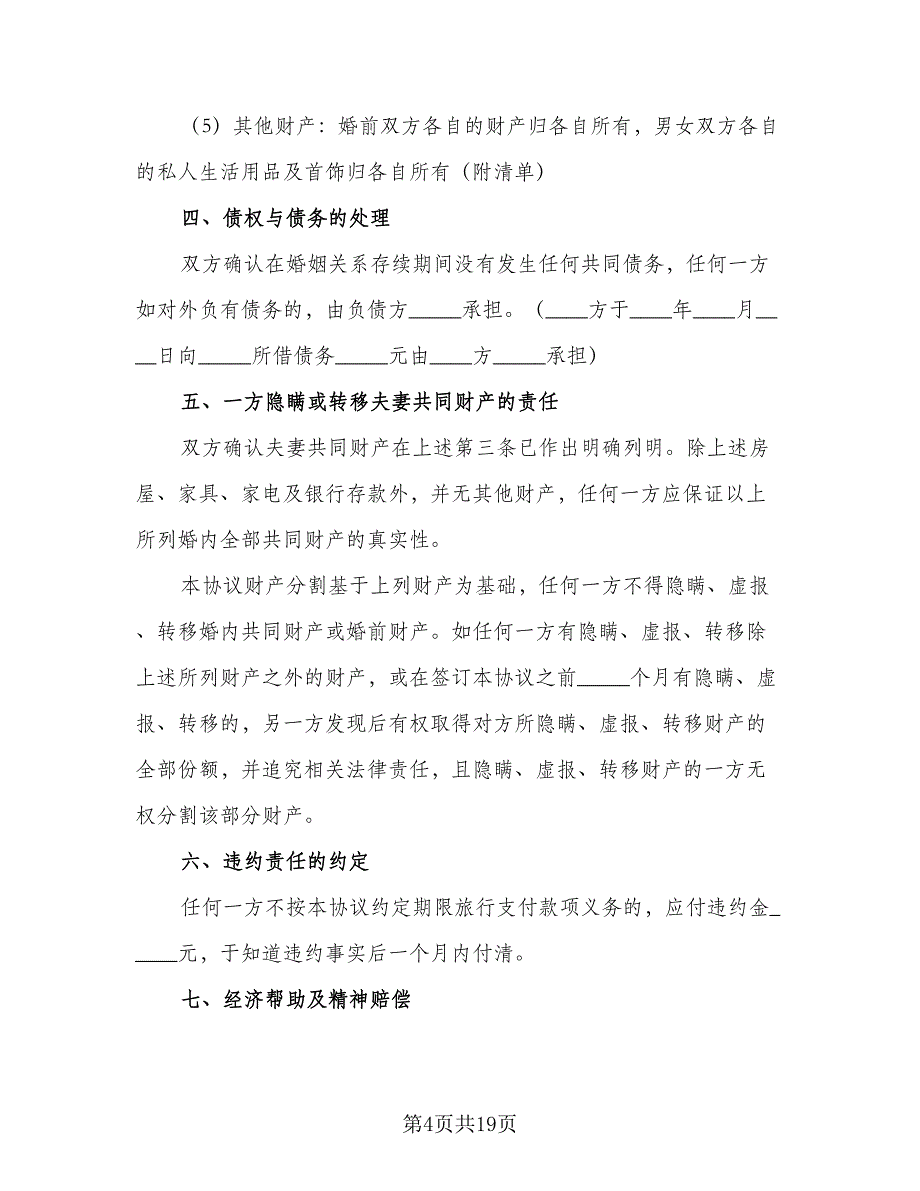 （5）其他财产：婚前双方各自的财产归各自所有，男女双方各自
的私人生活用品及首饰归各自所有（附清单）
四、债权与债务的处理
双方确认在婚姻关系存续期间没有发生任何共同债务，任何一方
如对外负有债务的，由负债方_____承担。（____方于____年____月__
__日向_____所借债务_____元由____方_____承担）
五、一方隐瞒或转移夫妻共同财产的责任
双方确认夫妻共同财产在上述第三条已作出明确列明。除上述房
屋、家具、家电及银行存款外，并无其他财产，任何一方应保证以上
所列婚内全部共同财产的真实性。
本协议财产分割基于上列财产为基础，任何一方不得隐瞒、虚报
、转移婚内共同财产或婚前财产。如任何一方有隐瞒、虚报、转移除
上述所列财产之外的财产，或在签订本协议之前_____个月有隐瞒、虚
报、转移的，另一方发现后有权取得对方所隐瞒、虚报、转移财产的
全部份额，并追究相关法律责任，且隐瞒、虚报、转移财产的一方无
权分割该部分财产。
六、违约责任的约定
任何一方不按本协议约定期限旅行支付款项义务的，应付违约金_
____元，于知道违约事实后一个月内付清。
七、经济帮助及精神赔偿
第4页共19页